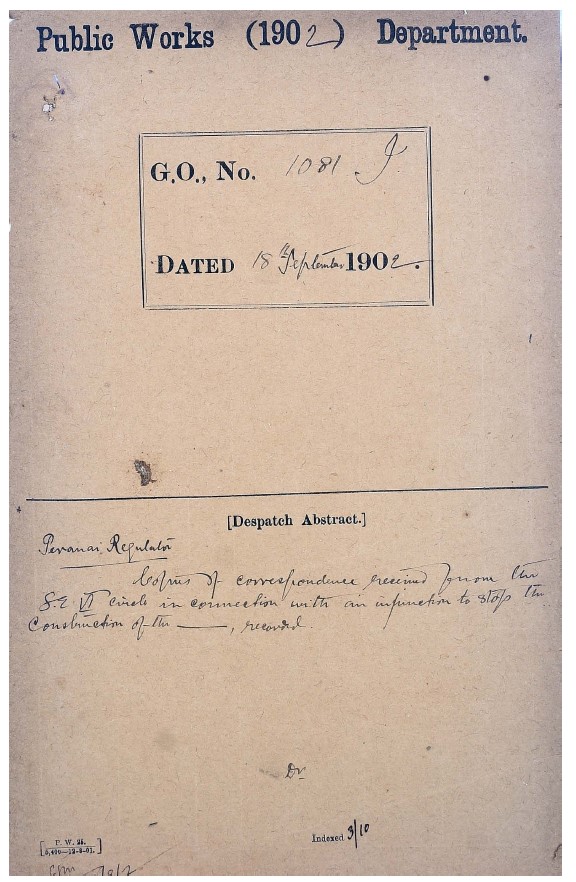 Public Works (1902) Department.
G.O., No. 1081 I
DATED 18th September 1902.
[Despatch Abstract.]
Peranai Regulator
Copies of correspondence received from the
S.E. VI circle in connection with an injunction to stop the
construction of the ——, recorded.
Dr
Indexed 3/10
P. W. 25.
5,400—12-9-01.